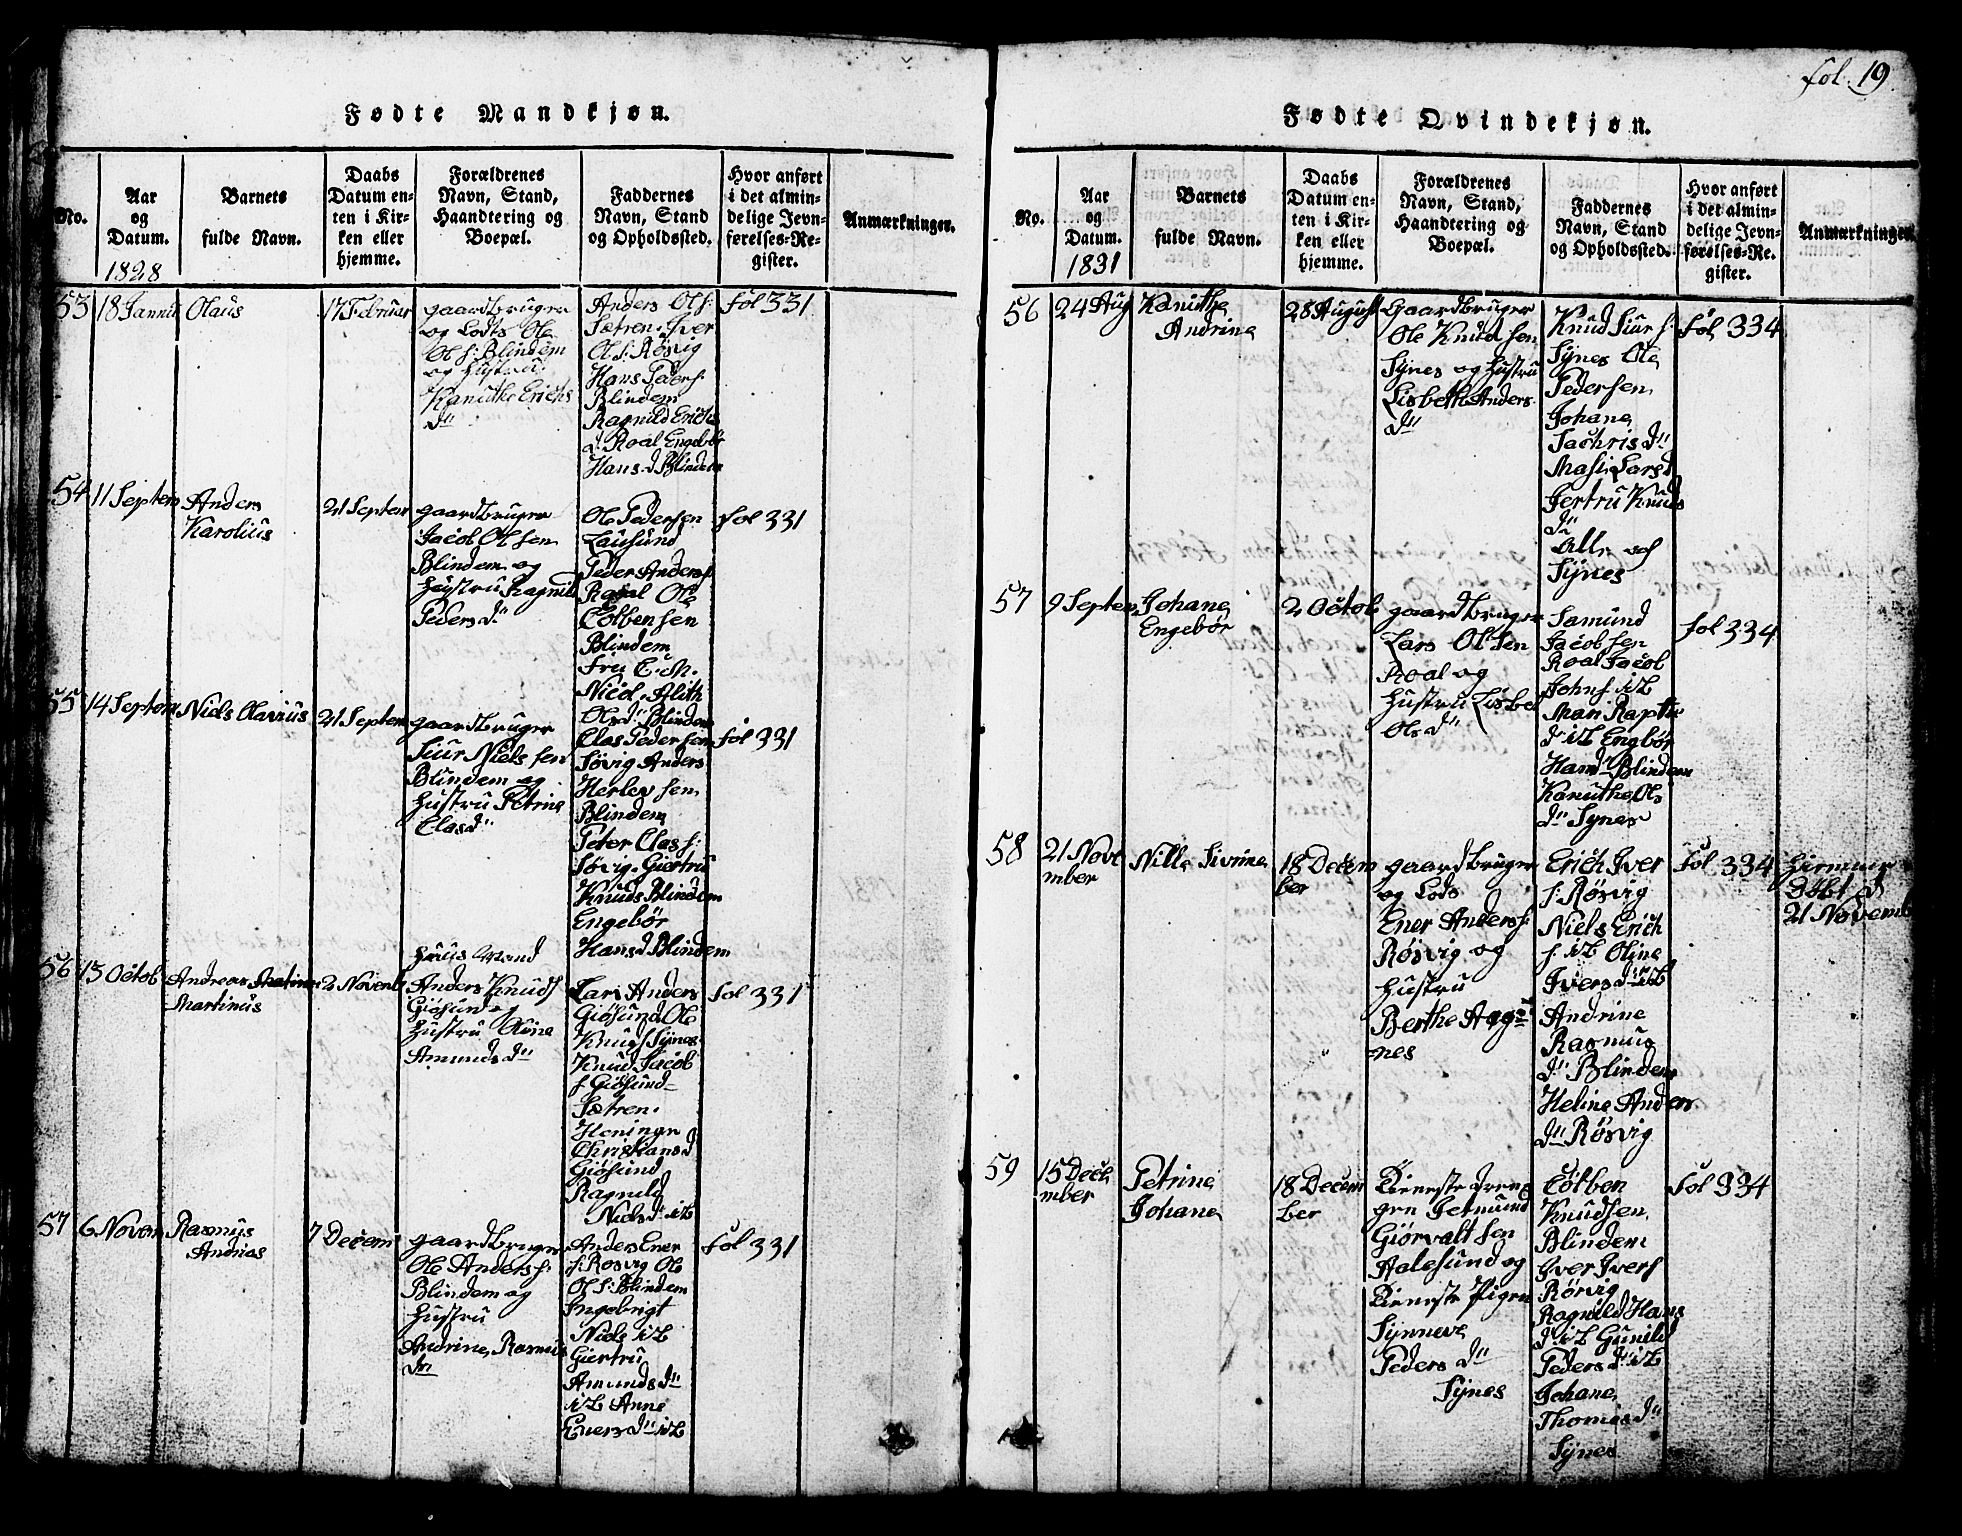 fol. 19.
Fødte Mandkjøn.
No.
Aar
og
Datum.
1828
Barnets
fulde Navn.
Daabs
Datum en-
ten i Kir-
ken eller
hjemme.
Forældrenes
Navn, Stand,
Haandtering og
Boepæl.
Faddernes
Navn, Stand
og Opholdssted.
Hvor anført
i det almin-
delige Jevn-
førelses-Re-
gister.
Anmærkninger.
53
18 Januar
Olaus
17 Februar
gaardbruger
og Lodts Ole
Ols: Blindem
og Hustru
Kanuthe Erichs
dn
Anders Ols:
Sætren. Iver
Ols: Røsvig
Hans Peders:
Blindem
Ragnild Erichs
d. Roal Engebør
Hans d Blindem
fol 331
54
11 Septem
Anders
Karolius
21 Septem
gaardbruger
Jacob Olsen
Blindem og
Hustru Ragnild
Peders dn
Ole Pedersen
Lausund
Peder Anders:
Roal Ole
Colbensen
Blindem
Fru C. M.
Nicol. Alith
Olsdn Blindem
fol 331
55
14 Septem
Niels Olavius
21 Septem
gaardbruger
Siur Nielssen
Blindem og
Hustru Petrine
Clasdn
Clas Pedersen
Søvig Anders
Herlevsen
Blindem
Peter Clas s:
Søvig. Giertru
Knuds Blindem
Engebør
Hansd Blindem
fol 331
56
13 Octob
Andreas
Martinus
2 Novemb
Huus Mand
Anders Knuds
Giøsund og
Hustru Oline
Amunds dn
Lars Anders
Giøsund Ole
Knuds Synes
Knud Jacob
s Giøsund
Sætren.
Christiansd
Giøsund
Ragnild
Niels dn ib
fol 331
57
6 Novem
Rasmus
Andreas
7 Decem
gaardbruger
Ole Anders s:
Blindem og
Hustru
Andrine Rasmus
dn
Anders Ener
s: Røsvig Ole
Ols: Blindem
Ingebrigt
Niels ib
Giertru
Amunds dn
ib Anne
Eners dn ib
fol 331
Fødte Qvindekjøn.
No.
Aar
og
Datum.
1831
Barnets
fulde Navn.
Daabs
Datum en-
ten i Kir-
ken eller
hjemme.
Forældrenes
Navn, Stand,
Haandtering og
Boepæl.
Faddernes
Navn, Stand
og Opholdssted.
Hvor anført
i det almin-
delige Jevn-
førelses-Re-
gister.
Anmærkninger.
56
24 Aug
Kanuthe
Andrine
28 August
Gaardbruger
Ole Knudsen
Synes og Hustru
Lisbeth Anders
dn
Knud Siur s:
Synes Ole
Pedersen
Johane
Sachris dn
Masi Larsd
Jertru Knuds
dn
Alle af
Synes
fol 334
57
9 Septem
Johane
Engebør
2 Octob
gaardbruger
Lars Olsen
Roal og
Hustru Lisbet
Ols dn
Samund
Jacobsen
Roal Jacob
Johns ib
Mari Raptu
d ib Engbør
Hansd Blindem
Kanuthe Ols
dn Synes
fol 334
58
21 Nove
mber
Nille Sivrine
18 Decem
ber
gaardbruger
og Lods
Ener Anders s:
Røsvig og
Hustru
Berthe Aag
nes
Erich Iver
s: Røsvig
Niels Erich
s ib Oline
Ivers dn ib
Andrine
Rasmus
dn Blindem
Heline Anders
dn Røsvig
fol 334
Hiemme
døbt d
21 Novemb
59
15 Dece
mber
Petrine
Johane
18 Decem
ber
Tieneste dren
gen
Giørvaltsen
Aalesund og
Tieneste Pigen
Synneve
Peders dn
Synes
Colben
Knudsen
Blindem
Iver Ivers
Rørvig
Ragnild Hans
d ib Gunild
Peders dn ib
Johane
Thomas dn
Synes
fol 334